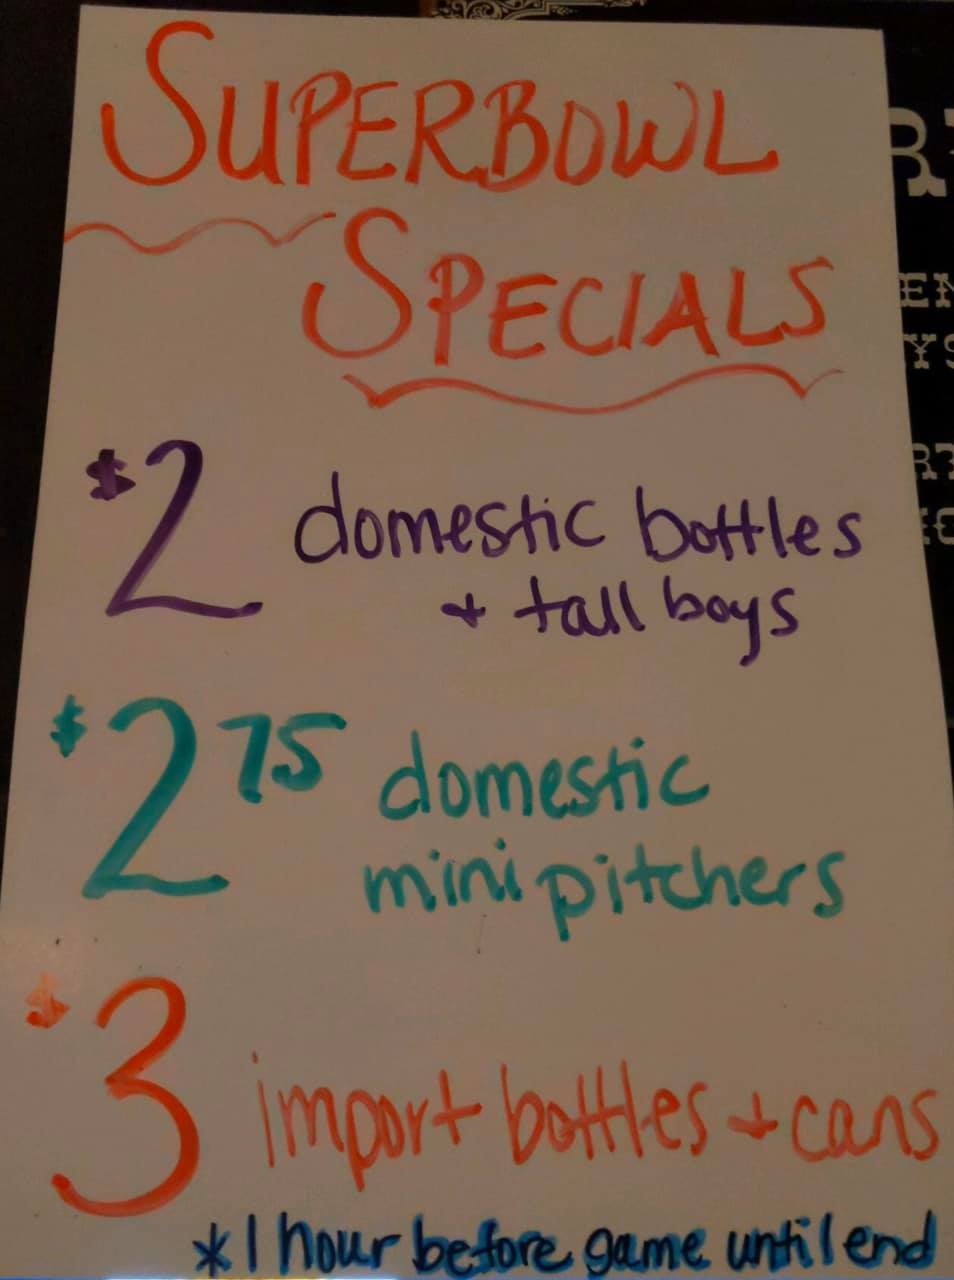 SUPERBOWL
SPECIALS
$2 domestic bottles
+ tall boys
$2 75 domestic
mini pitchers
$3 import bottles + cans
*1 hour before game until end